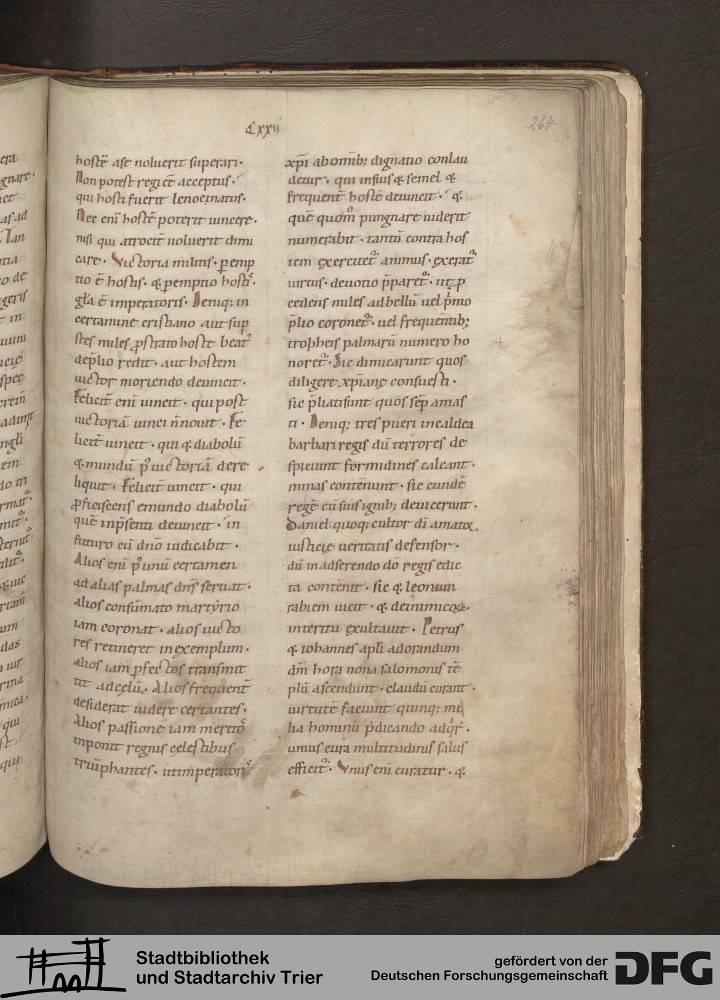 Cxxii
264
hostē a se noluerit superari·
Non potest regi eē acceptus·
qui hosti fuerit lenocinatus·
Nec eni hostē poterit uincere·
nisi qui atrocit noluerit dimi
care· Victoria militis· pemp
tio ē hostis· & pemptio hosti·
gła ē imperatoris· Deniq; in
certamine cristiano aut sup
stes miles pstrato hoste beat
deplio redit· aut hostem
uictor moriendo deuincit·
Felicit eni uincit· qui post
uictoriā uinci n nouit· Fe
licit uincit· qui & diabolū
& mundū p uictoriā dere
liquit· Felicit uincit· qui
pficiscens e mundo diabolū
quē inpsenti deuincit· in
futuro cū dno iudicabit·
Alios eni p unū certamen
ad alias palmas dns seruat·
alios consumato martyrio
iam coronat· alios uicto
res retineret in exemplum·
alios iam pfectos transmit
tit ad celū· Alios frequent
desiderat uidere certantes·
Alios passione iam merito
inponit regnis celestibus
triūphantes· ut imperatori
xpi ab omib; dignatio conlau
detur· qui in suis & semel &
frequent hostē deuincit· &
quē quom pungnare uiderit
numerabit· tantū contra hos
tem exercitet animus· exerat
uirtus· deuotio pparet· ut p
cedens miles ad bellū uel pmo
plio coronet· uel frequentib;
tropheis palmarū numero ho
noret· Sic dimicarunt quos
diligere xpiane consuesti·
sic pliati sunt quos sep amas
ti· Deniq; tres pueri incaldea
barbari regis dū terrores de
spiciunt formidines calcant·
minas contemnunt· sic eundē
regē cū suis ignib; deuicerunt·
Daniel quoq; cultor di amator
iusticie ueritatis defensor·
dū in adserendo do regis edic
ta contenit· sic & leonum
rabiem uicit· & de inimicor
interitu exultauit· Petrus
& iohannes apli adorandum
dm hora nona salomonis tē
plū ascendunt· claudū curant·
uirtutē faciunt quinq; mi
lia hominū pdicando adqr·
unius cura multitudinis salus
efficit· Vnus eni curatur· &
Stadtbibliothek
und Stadtarchiv Trier
gefördert von der
Deutschen Forschungsgemeinschaft
DFG